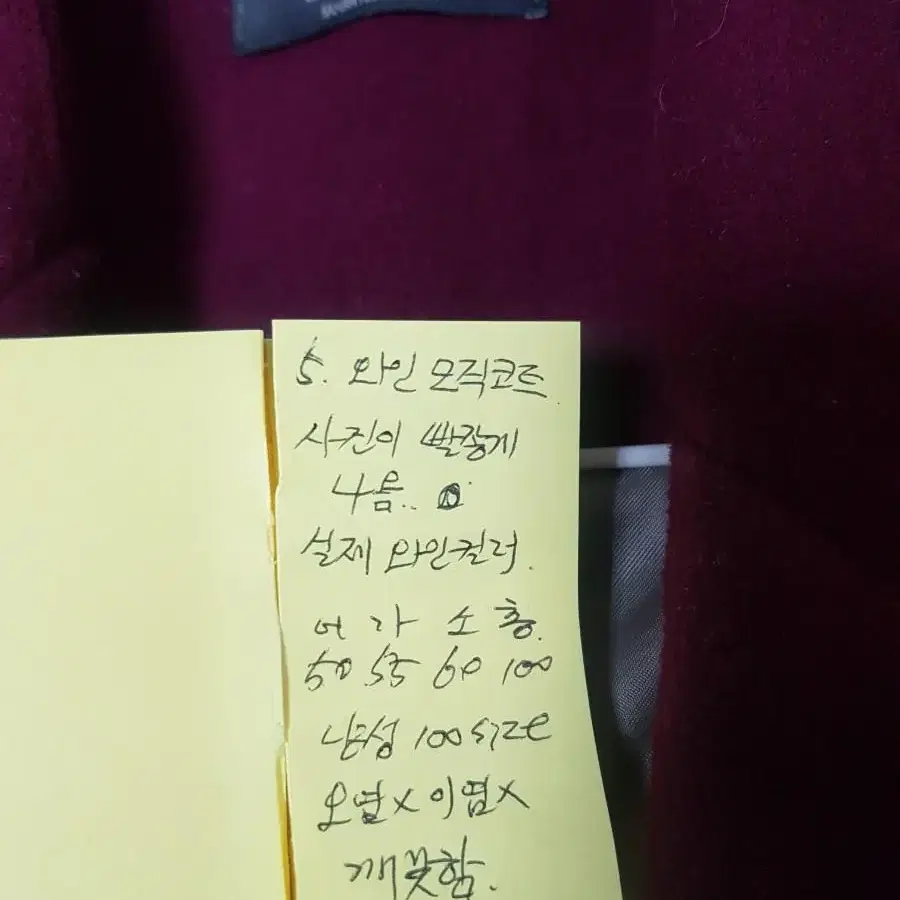 5. 와인 모직코트
사진이 빨갛게
나옴..
실제 와인컬러.
어 가 소 총.
50 55 60 100
남성 100 size
오염x 이염x
깨끗함.